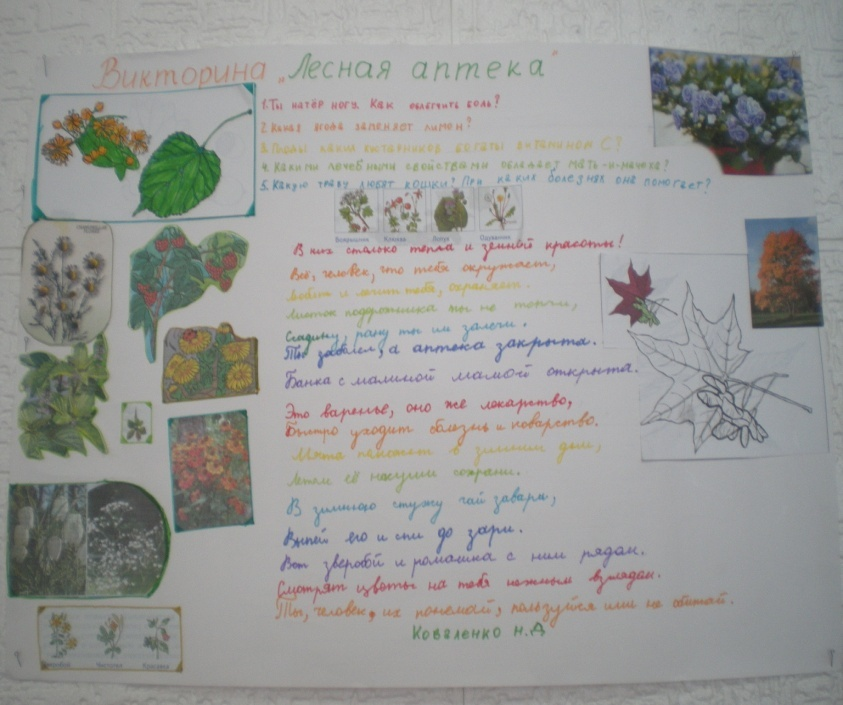 Викторина „Лесная аптека"
1. Ты натёр ногу. Как облегчить боль?
2. Какая ягода заменяет лимон?
3. Плоды каких кустарников богаты витамином С?
4. Какими лечебными свойствами обладает мать-и-мачеха?
5. Какую траву любят кошки? При каких болезнях она помогает?
Одуванчик
В них столько тепла и земной красоты!
Всё, человек, что тебя окружает,
Любит и лечит тебя, охраняет.
Листок подорожника ты не топчи,
Ссадину, рану ты им залечи.
Ты заболел, а аптека закрыта.
Банка с малиной мамой открыта.
Это варенье, оно же лекарство,
Быстро уходит болезнь и коварство.
Мята поможет в зимний день,
Летом её насуши сохрани.
В зимнюю стужу чай завари,
Выпей его и спи до зари.
Вот зверобой и ромашка с ним рядом.
Смотрят цветы на тебя нежным взглядом.
Ты, человек, их понимай, пользуйся или не обижай.
Коваленко Н.Д
Чистотел